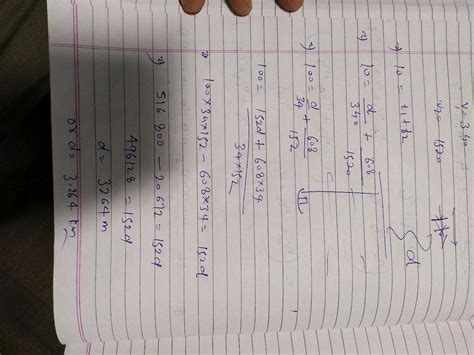 v = 340
v₂₀ 1520
d
⇒ 10 = t1 + t2
⇒ 10 = d/340 + 608/1520
⇒ 100 = d/34 + 608/152
100 = (152d + 608×34)/(34×152)
⇒ 100×34×152 - 608×34 = 152d
⇒ 516800 - 20672 = 152d
496128 = 152d
d = 3264 m
or d = 3.264 km